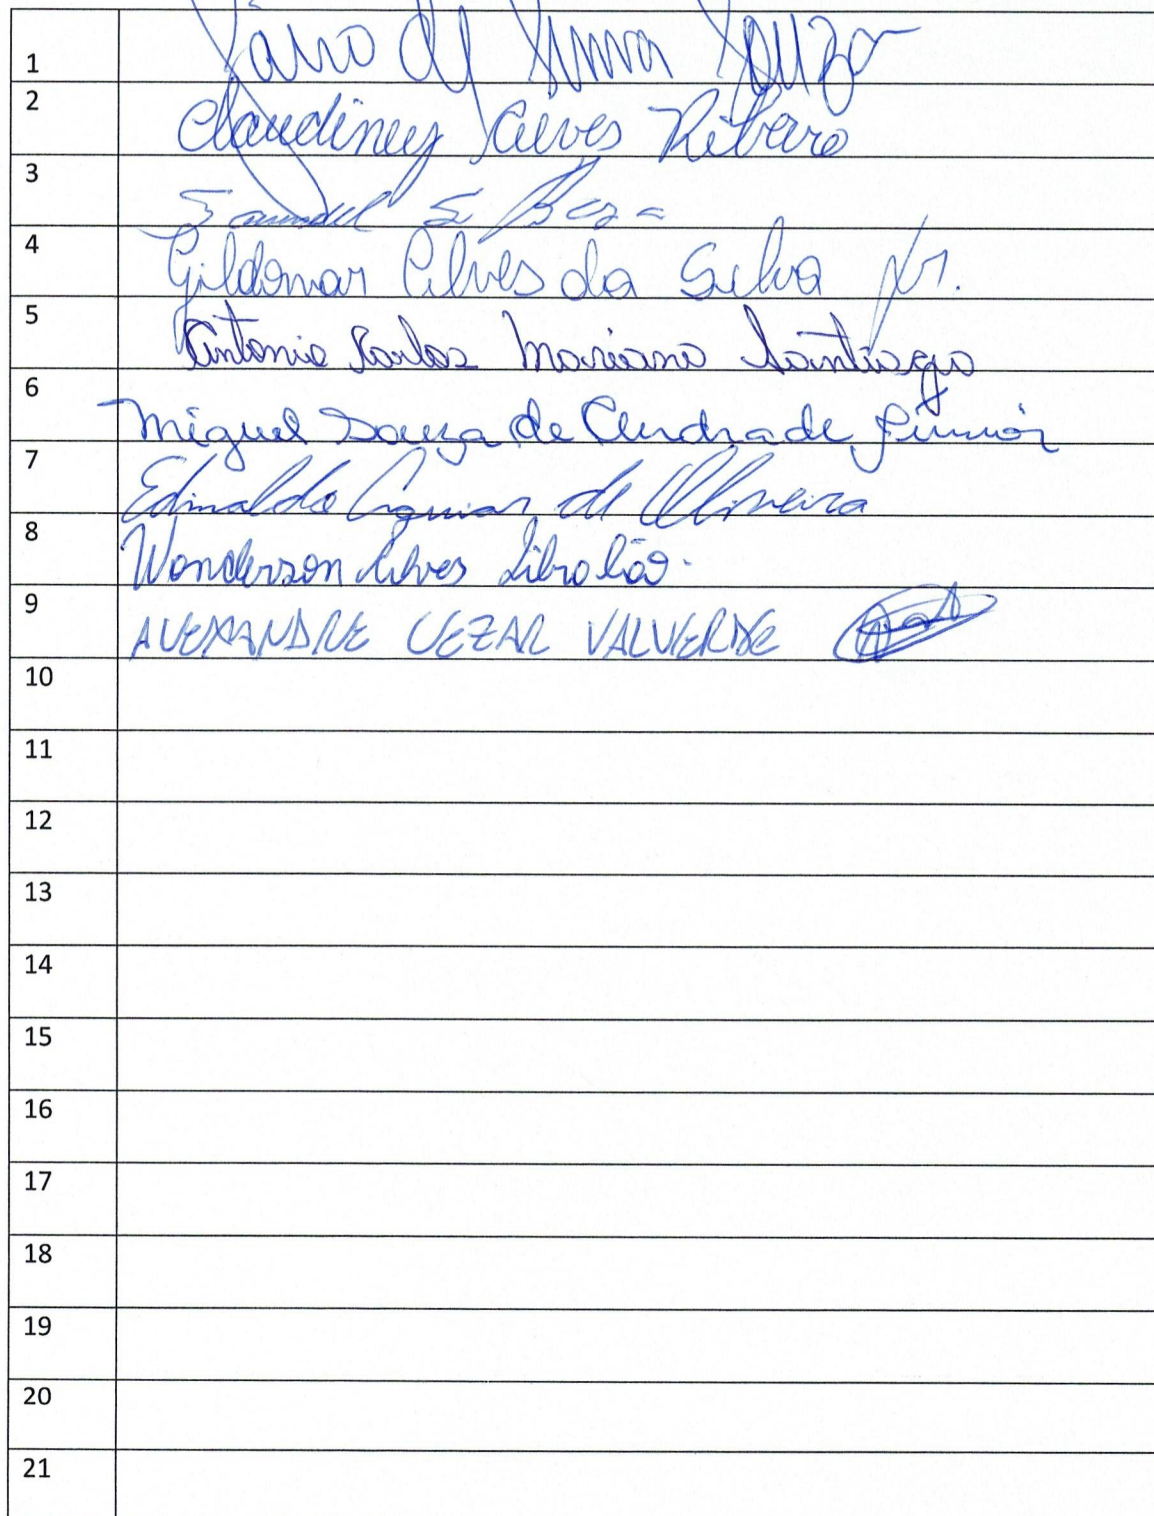 1 de Souza
2 Claudiney Alves Ribeiro
3 Samuel S
4 Gildomar Alves da Silva Jr.
5 Antonio Carlos Mariano Santiago
6 Miguel Souza de Andrade Júnior
7 Edinaldo Aguiar de Oliveira
8 Wanderson Alves
9 ALEXANDRE CEZAR VALVERDE
10
11
12
13
14
15
16
17
18
19
20
21